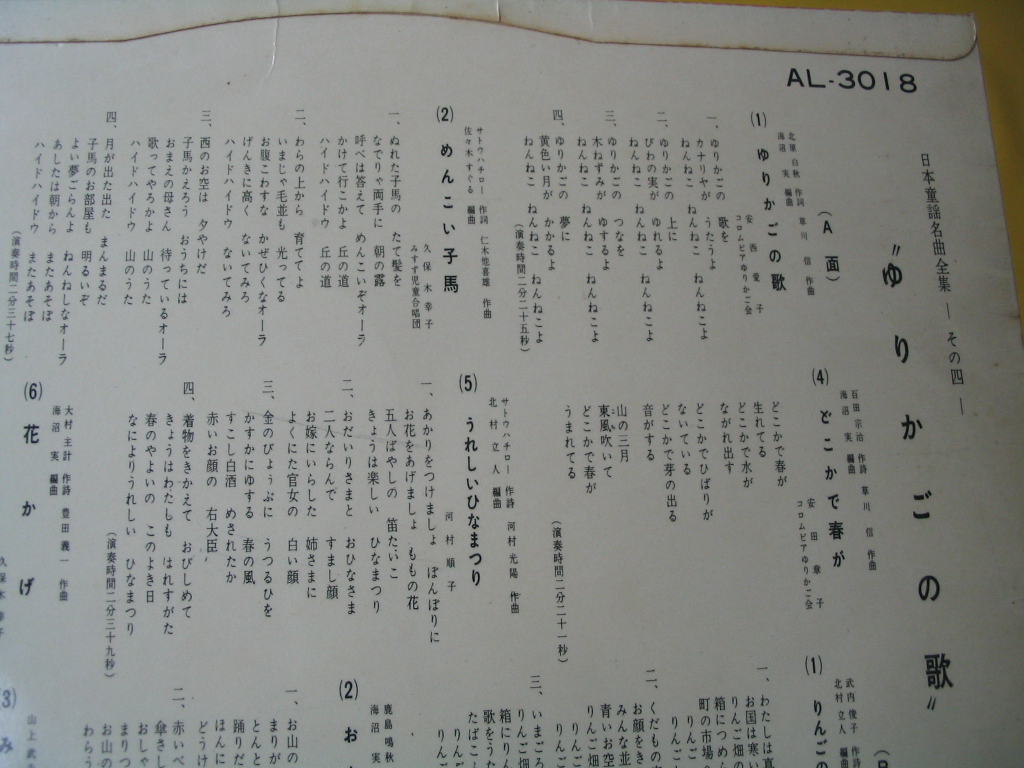 AL-3018
日本童謡名曲全集 ―その四―
"ゆりかごの歌"
(A面)
(1) ゆりかごの歌
北原白秋 作詞 草川信 作曲
海沼実 編曲
安西愛子
コロムビアゆりかご会
一、ゆりかごの 歌を
カナリヤが うたうよ
ねんねこ ねんねこ ねんねこよ
二、ゆりかごの 上に
びわの実が ゆれるよ
ねんねこ ねんねこ ねんねこよ
三、ゆりかごの つなを
木ねずみが ゆするよ
ねんねこ ねんねこ ねんねこよ
四、ゆりかごの 夢に
黄色い月が かかるよ
ねんねこ ねんねこ ねんねこよ
(演奏時間二分二十五秒)
(2) めんこい子馬
サトウハチロー 作詞 仁木他喜雄 作曲
佐々木すぐる 編曲
久保木幸子
みすず児童合唱団
一、ぬれた子馬の たて髪を
なでりゃ両手に 朝の露
呼べば答えて めんこいぞオーラ
かけて行こかよ 丘の道
ハイドハイドウ 丘の道
二、わらの上から 育ててよ
いまじゃ毛並も 光ってる
お腹こわすな かぜひくなオーラ
げんきに高く ないてみろ
ハイドハイドウ ないてみろ
三、西のお空は 夕やけだ
子馬かえろう おうちには
おまえの母さん 待っているオーラ
歌ってやろかよ 山のうた
ハイドハイドウ 山のうた
四、月が出た出た まんまるだ
子馬のお部屋も 明るいぞ
よい夢ごらんよ ねんねしなオーラ
あしたは朝から またあそぼ
ハイドハイドウ またあそぼ
(演奏時間二分三十七秒)
(4) どこかで春が
百田宗治 作詩 草川信 作曲
海沼実 編曲
安田章子
コロムビアゆりかご会
どこかで春が
生れてる
どこかで水が
ながれ出す
どこかでひばりが
ないている
どこかで芽の出る
音がする
山の三月
東風吹いて
どこかで春が
うまれてる
(演奏時間二分二十一秒)
(5) うれしいひなまつり
サトウハチロー 作詩 河村光陽 作曲
北村立人 編曲
河村順子
一、あかりをつけましょ ぼんぼりに
お花をあげましょ ももの花
五人ばやしの 笛たいこ
きょうは楽しい ひなまつり
二、おだいりさまと おひなさま
二人ならんで すまし顔
お嫁にいらした 姉さまに
よくにた官女の 白い顔
三、金のびょうぶに うつるひを
かすかにゆする 春の風
すこし白酒 めされたか
赤いお顔の 右大臣
四、着物をきかえて おびしめて
きょうはわたしも はれすがた
春のやよいの このよき日
なによりうれしい ひなまつり
(演奏時間二分三十九秒)
(6) 花かげ
大村主計 作詩 豊田義一 作曲
海沼実 編曲
久保木幸子
(1) りんごの
武内俊子 作詩
北村立人 編曲
一、わたしは真
お国は寒い
りんご畑の
箱につめ
町の市場
りんご
二、くだもの
お顔をき
みんな並
青いお空
りんご畑
りんご
三、いまごろ
りんご畑
箱にりん
歌をうた
たばこ
りんご
(2) お
鹿島鳴秋
海沼実
一、お山の
まりが
とんと
踊りだ
ほんに
どうけ
二、赤いべ
傘さし
おしゃ
まりつ
お山の
わらう
(3) み
山上武夫